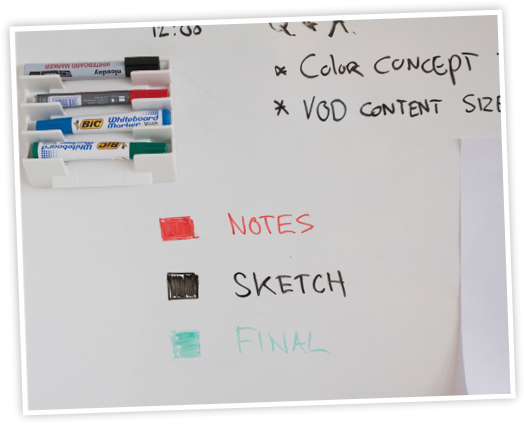 12:00
Q & A.
* COLOR CONCEPT
* VOD CONTENT SIZE
niceday WHITEBOARD MARKER
BIC Whiteboard Marker
BIC Whiteboard
NOTES
SKETCH
FINAL